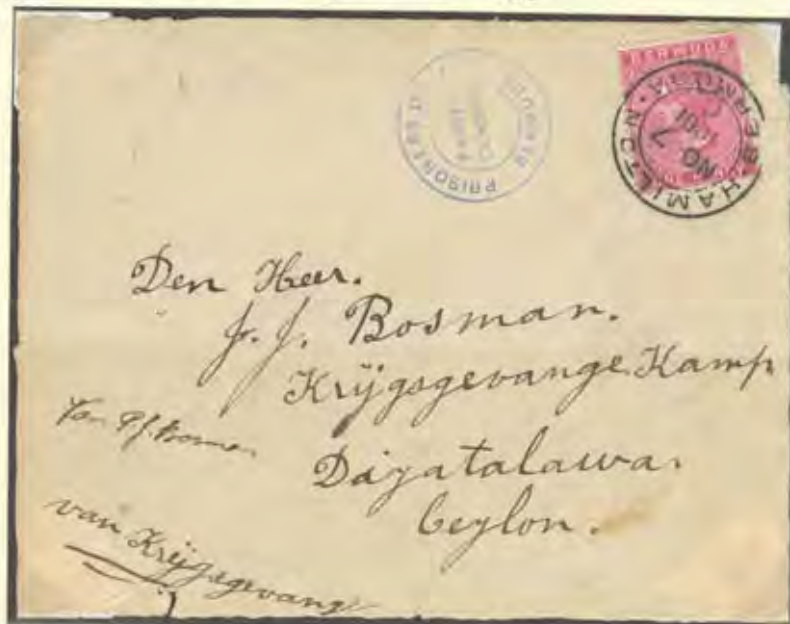 BERMUDA
HAMILTON · BERMUDA
NO 7
1901
PRISONERS OF
Den Heer.
J. J. Bosman.
Krijgsgevange Kamp
Dayatalawa.
Ceylon.
van Krijgsgevang